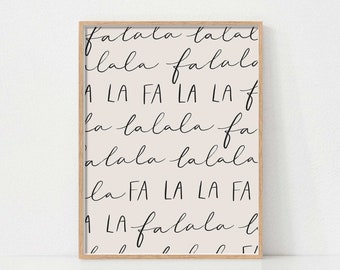 falala lalala
lalala falala
A LA FA LA LA F
la lalala fa
falala lalala
la FA LA LA FA
LA falala la
lala lalala FA